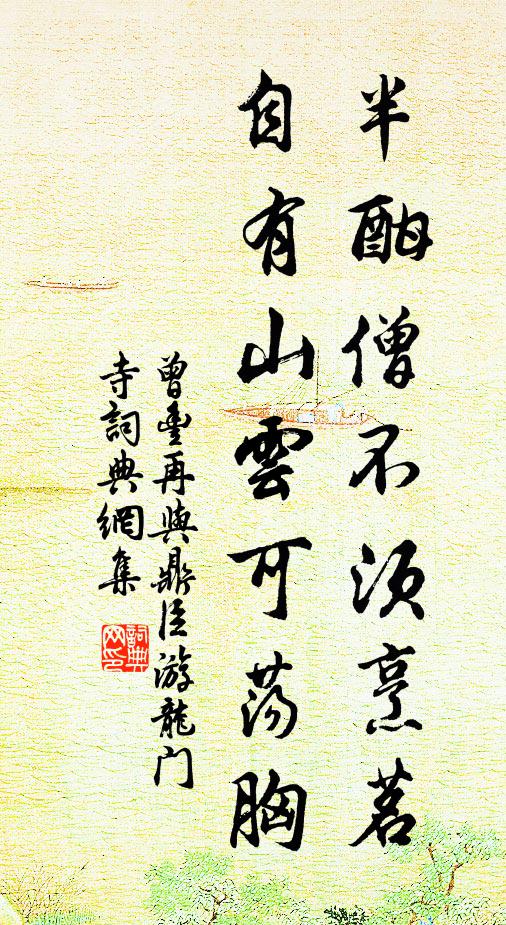 半酣僧不須烹茗
自有山雲可荡胸
曾豊再與鼎臣游龍门
寺詞典網集
詞典
网印